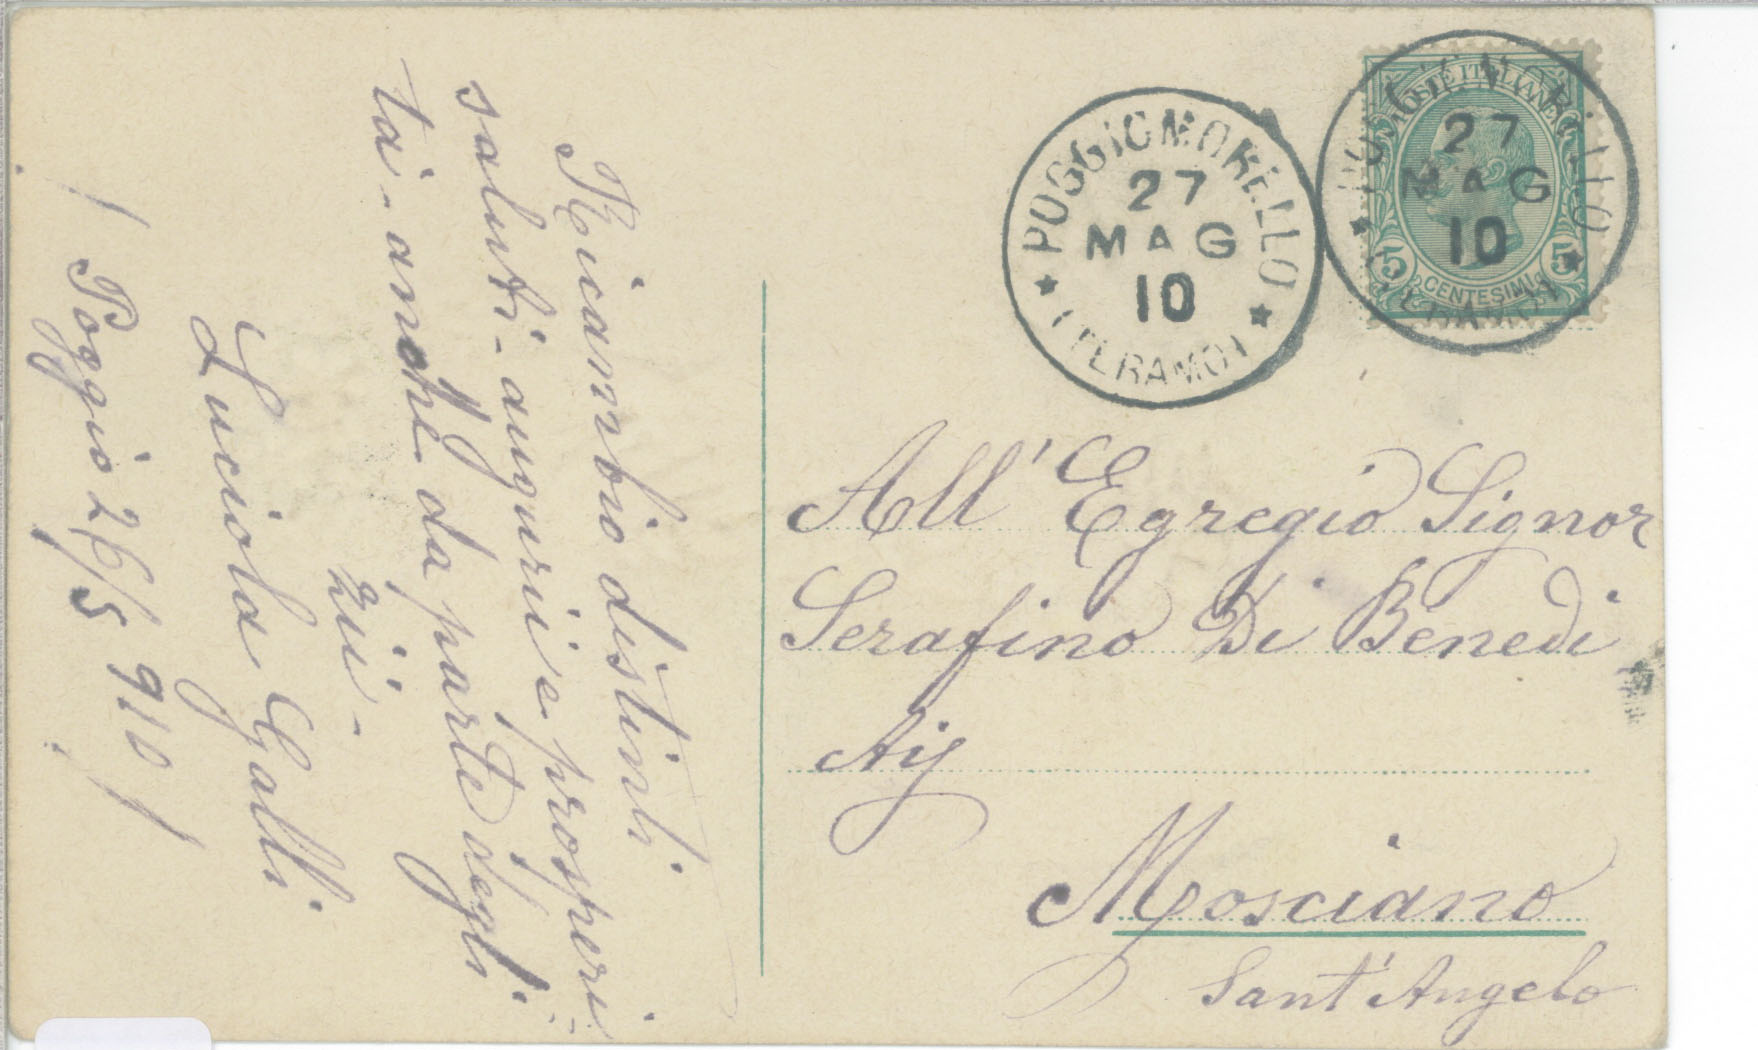 Ricambio distinti
saluti - augurii e prosperi
tà - anche da parte degli
zii -
Luciola Galli
Poggio 26/5 910
POGGIOMORELLO
27
MAG
10
(TERAMO)
POSTE ITALIANE
5 5
CENTESIMI
POGGIOMORELLO
27
MAG
10
(TERAMO)
All' Egregio Signor
Serafino Di Benedi
Mosciano
Sant'Angelo